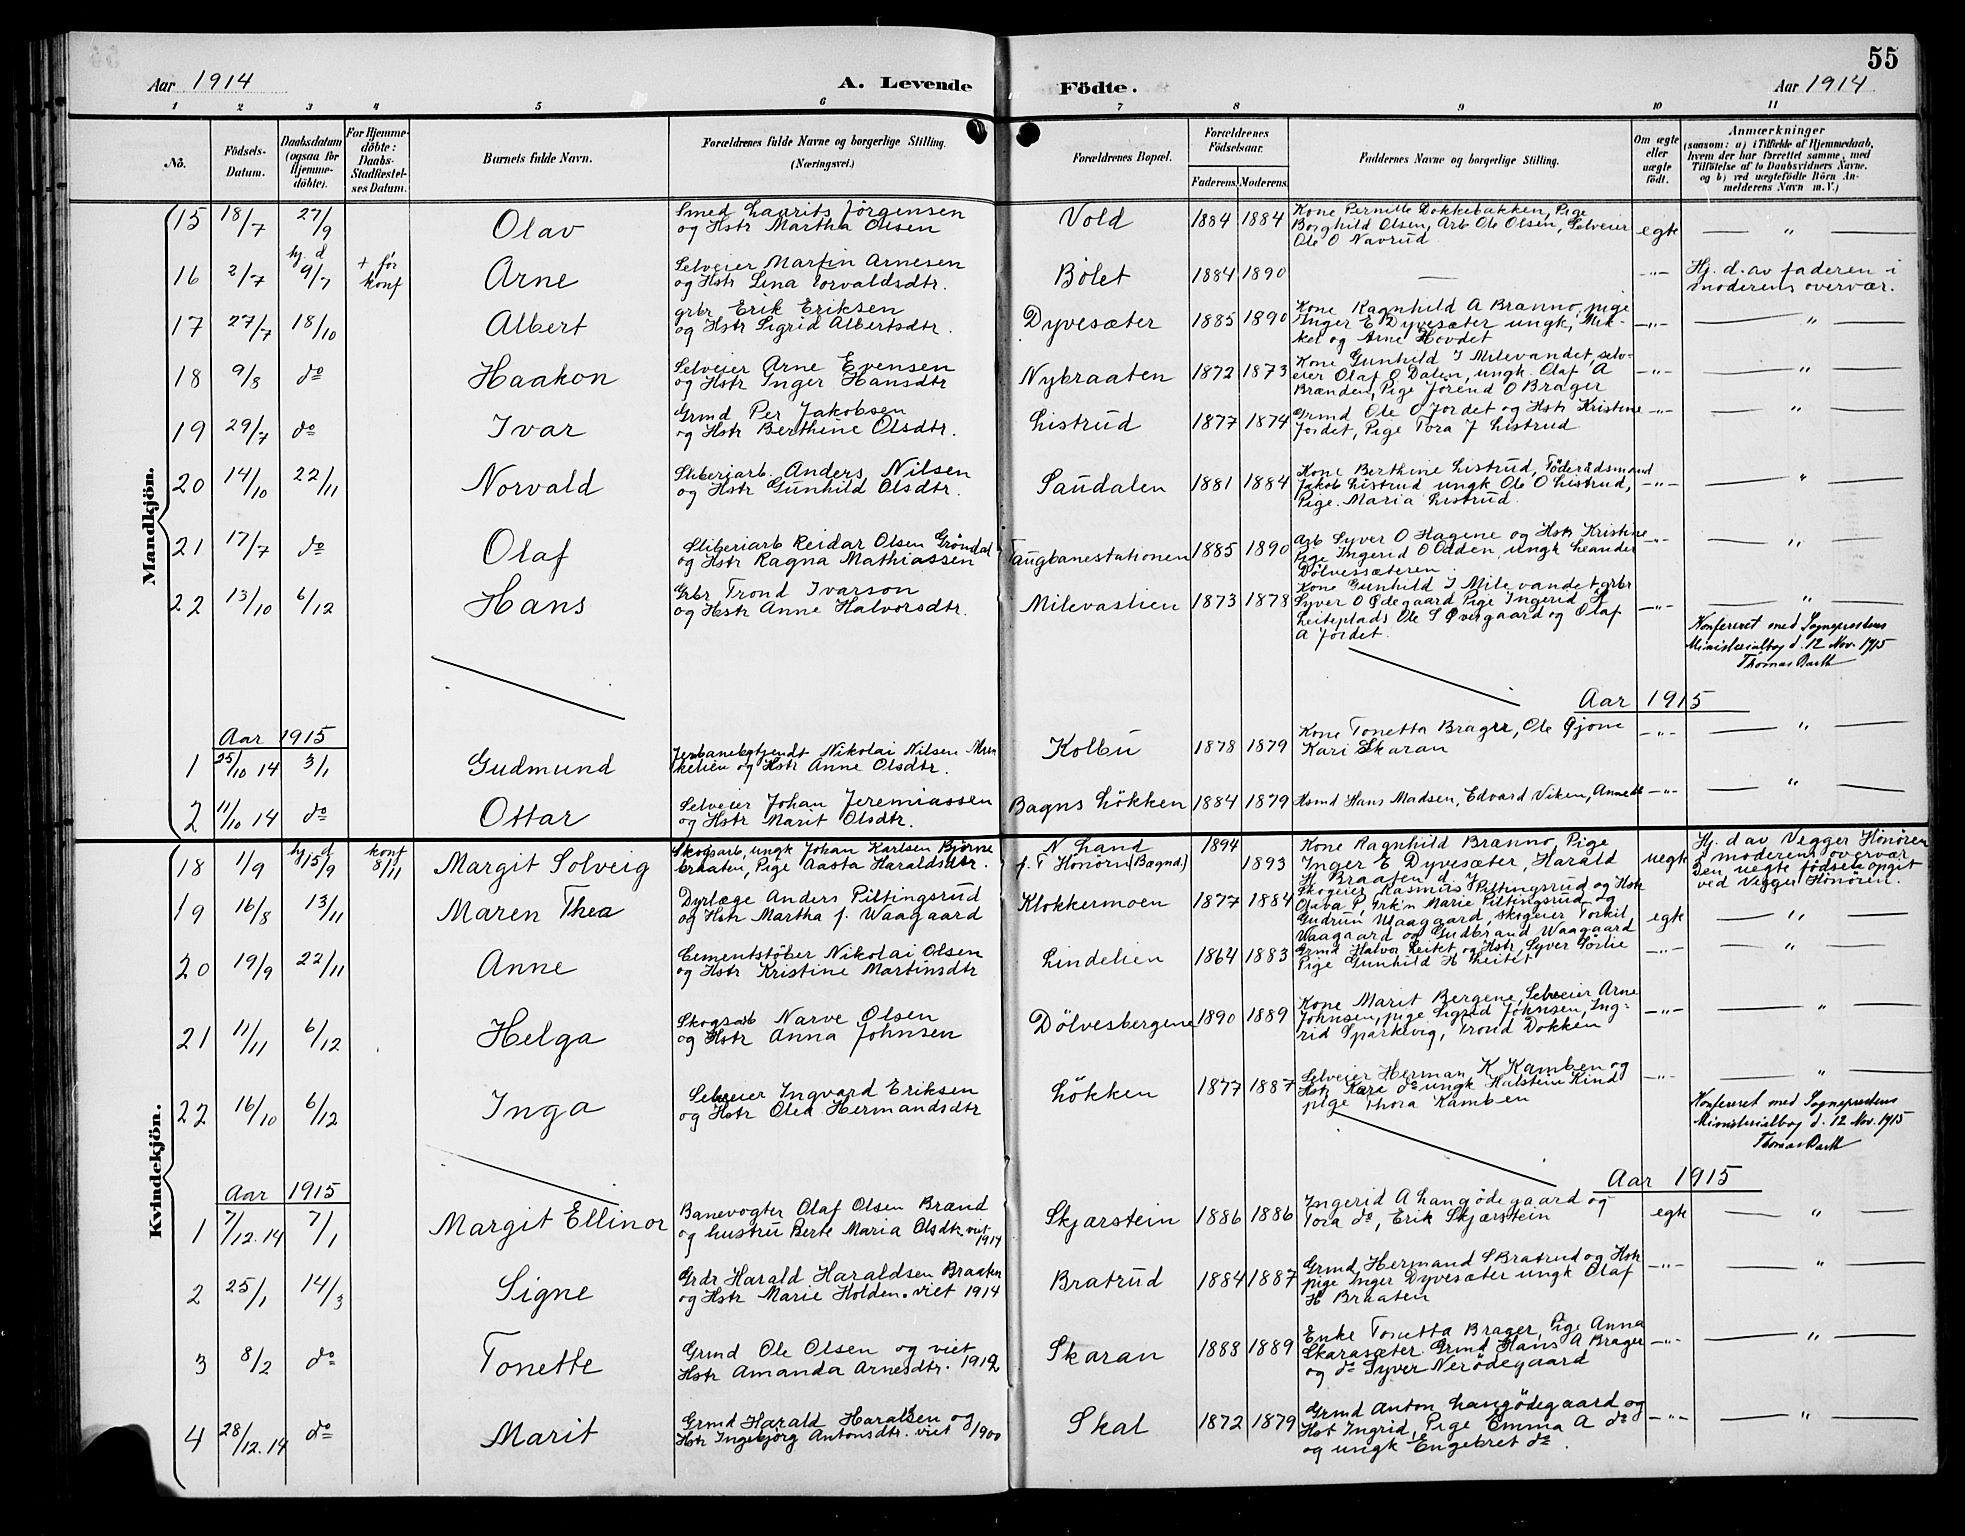 55
Aar 1914 A. Levende Födte. Aar 1914
1 2 3 4 5 6 7 8 9 10 11
No. Födsels-Datum. Daabsdatum (ogsaa for Hjemme-döbte). For Hjemme-döbte: Daabs-Stadfæstel-ses Datum. Barnets fulde Navn. Forældrenes fulde Navne og borgerlige Stilling. (Næringsvei.) Forældrenes Bopæl. Forældrenes Födselsaar. Faderens. Moderens. Faddernes Navne og borgerlige Stilling. Om ægte eller uægte födt. Anmærkninger (saasom: a) i Tilfælde af Hjemmedaab, hvem der har forrettet samme, med Tilföielse af to Daabsvidners Navne, og b) ved uægtefödte Börn An-melderens Navn m. V.)
Mandkjön.
15 18/7 27/9 Olav Smed Laurits Jörgensen Vold 1884 1884 Kone Pernille Dokkebakken, Pige
og Hstr Martha Olsen Borghild Olsen, Arb Ole Olsen, Selveier egte — " —
Ole O Navrud
16 2/7 hj. d 9/7 + før konf Arne Selveier Martin Arnesen Bölet 1884 1890 — -"- Hj. d. av faderen i
og Hstr Lina Torvaldsdtr. moderens overvær.
17 27/7 18/10 Albert grbr Erik Eriksen Dyvesæter 1885 1890 Kone Ragnhild A Branno, pige
og Hstr Sigrid Albertsdtr. Inger E Dyvesæter ungk, Mik- -"- — " —
kel og Arne Hovdet
18 9/8 do Haakon Selveier Arne Evensen Nybraaten 1872 1873 Kone Gunhild I Milevandet, selv-
og Hstr Inger Hansdtr eier Olaf O Dalen, ungk. Olaf A -"- — " —
Brænden, Pige Jörend O Brager
19 29/7 do Ivar Grmd Per Jakobsen Listrud 1877 1874 Grmd Ole O Jordet og Hstr Kristine -"- — " —
og Hstr Berthine Olsdtr. Jordet, Pige Tora J Listrud
20 14/10 22/11 Norvald Sliberiarb. Anders Nilsen Saudalen 1881 1884 Kone Berthine Listrud, Föderådsmand
og Hstr Gunhild Olsdtr. Jakob Listrud ungk Ole O Listrud, -"- — " —
Pige. Maria Listrud.
21 17/7 do Olaf Sliberiarb Reidar Olsen Gröndal Taugbanestationen 1885 1890 Arb Syver O Hagene og Hstr Kristine
og Hstr Ragna Mathiassen Pige Ingerid O Odden, ungk Leander -"- — " —
Dölvessæteren
22 13/10 6/12 Hans Grbr Trond Ivarson Milevaslien 1873 1878 Kone Gunhild I Milevandet grbr
og Hstr Anne Halvorsdtr. Syver O Ødegaard Pige Ingerid H -"- — " —
Leiteplads Ole S Øvergaard og Olaf
A Jordet.
Konfereret med Sogneprestens
Ministerialbog d. 12 Nov. 1915
Thomas Barth
Aar 1915 Aar 1915
1 25/10 14 3/1 Gudmund Jernbanebetjendt Nikolai Nilsen Kolbu 1878 1879 Kone Tonetta Brager, Ole Gjone -"- — " —
og Hstr Anne Olsdtr. Kari Skaran
2 11/10 14 do Ottar Selveier Johan Jeremiassen Bagns Lökken 1884 1879 Hsmd Hans Madsen, Edvard Viken, Anne do -"- — " —
og Hstr Marit Olsdtr.
Kvindekjön.
18 1/9 hj. d 15/9 konf 8/11 Margit Solveig Skogsarb, ungk Johan Karlsen Bjørne N Land 1894 Kone Ragnhild Branno, Pige Hj. d av Vegger Hönören
braaten, Pige Aasta Haraldsdtr. f. T Honörn (Bagnd.) 1893 Inger E Dyvesæter, Harald uegte i moderens overvær
H Braaten d. y. Den uegte födsel opgit
ved Vegger Hönören.
19 16/8 13/11 Maren Thea Dyrlæge Anders Piltingsrud Klokkermoen 1877 1884 Skogeier Rasmus Piltingsrud og Hstr
og Hstr Martha f. Waagaard Olava P, Frk'n Marie Piltingsrud og
Gudrun Waagaard, skogeier Torkil egte — " —
Waagaard og Gudbrand Waagaard
20 19/9 22/11 Anne Cementstöber Nikolai Olsen Lindelien 1864 1883 Grmd Halvor Leitet og Hstr, Syver Sörlie -"- — " —
og Hstr Kristine Martinsdtr Pige Gunhild H Leitet
21 11/11 6/12 Helga Skogsarb Narve Olsen Dölvesbergene 1890 1889 Kone Marit Bergene, Selveier Arne
og Hstr Anna Johnsen Johnsen, pige Sigrid Johnsen, Ing- -"- — " —
rid Sparkevig, Trond Dokken
22 16/10 6/12 Inga Selveier Ingvard Eriksen Lökken 1877 1887 Selveier Herman K Kamben og
og Hstr Olea Hermandsdtr Hstr Kari do ungk Halstein Hind -"- — " —
pige Thora Kamben
Konfereret med Sogneprestens
Ministerialbog d. 12 Nov. 1915
Thomas Barth
Aar 1915 Aar 1915
1 7/12.14 7/1 Margit Ellinor Banevogter Olaf Olsen Brænd Skjærstein 1886 1886 Ingerid A Langödegaard og egte — " —
og hustru Berte Maria Olsdtr. viet 1914 Tora do, Erik Skjærstein
2 25/1 14/3 Signe Grdr Harald Haraldsen Braaten Bratrud 1884 1887 Grmd Hermand S Bratrud og Hstr -"- — " —
og Hstr Marie Holden. viet 1914 pige Inger Dyvesæter ungk Olaf
H Braaten
3 8/2 do Tonette Grmd Ole Olsen og viet Skaran 1888 1889 Enke Tonetta Brager, Pige Anna
Hstr Amanda Arnesdtr. 1912 Skarasæter. Grmd Hans A Brager -"- — " —
og do Syver Nerödegaard
4 28/12.14 do Marit Grmd Harald Haralsen og Skal 1872 1879 Grmd Anton Langödegaard og
Hstr Ingebjörg Antonsdtr. viet 1900 Hst Ingrid, Pige Emma A do -"- — " —
og ungk Engebret do.